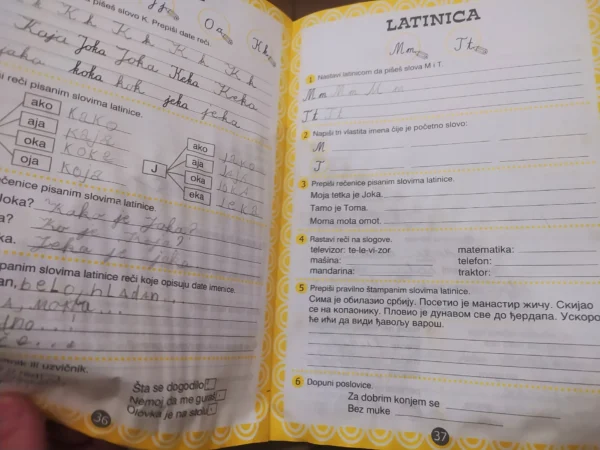 pišeš slovo K. Prepiši date reči.
O a
K k
K k K k K k K k
Kaja Joka Joka Keka Keka
koka kok jeka jeka
reči pisanim slovima latinice.
ako
aja
oka
oja
kako
kaja
koka
koja
J
ako
aja
oka
eka
jako
jeka
rečenice pisanim slovima latinice.
Joka? Kako je Joka?
Ko je
Joka
štampanim slovima latinice reči koje opisuju date imenice.
belo, hladan
ili uzvičnik.
Šta se dogodilo
Nemoj da me guraš
Olovka je na stolu
36
LATINICA
M m
T t
1 Nastavi latinicom da pišeš slova M i T.
M m M m M m
T t T t
2 Napiši tri vlastita imena čije je početno slovo:
M
T
3 Prepiši rečenice pisanim slovima latinice.
Moja tetka je Joka.
Tamo je Toma.
Moma mota omot.
4 Rastavi reči na slogove.
televizor: te-le-vi-zor
matematika:
mašina:
telefon:
mandarina:
traktor:
5 Prepiši pravilno štampanim slovima latinice.
Сима је обилазио србију. Посетио је манастир жичу. Скијао
се на копаонику. Пловио је дунавом све до ђердапа. Ускоро
ће ићи да види ђавољу варош.
6 Dopuni poslovice.
Za dobrim konjem se
Bez muke
37